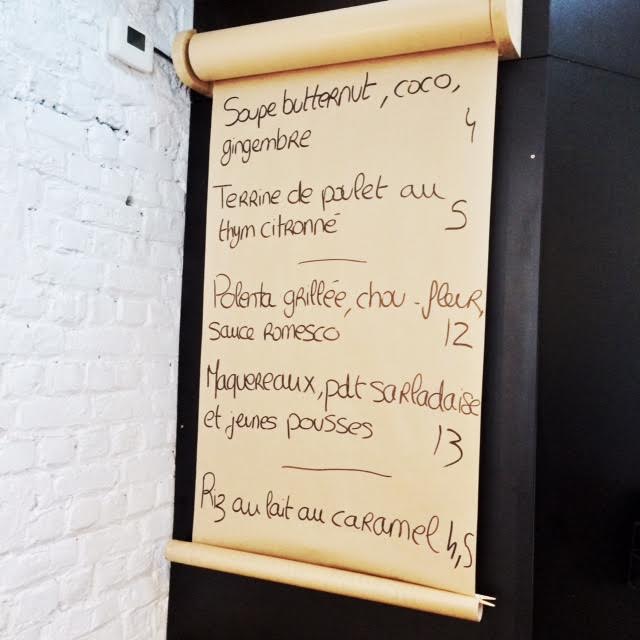 Soupe butternut, coco,
gingembre 4
Terrine de poulet au
thym citronné 5
Polenta grillée, chou-fleur,
sauce romesco 12
Maquereaux, pdt sarladaise
et jeunes pousses 13
Riz au lait au caramel 4,5